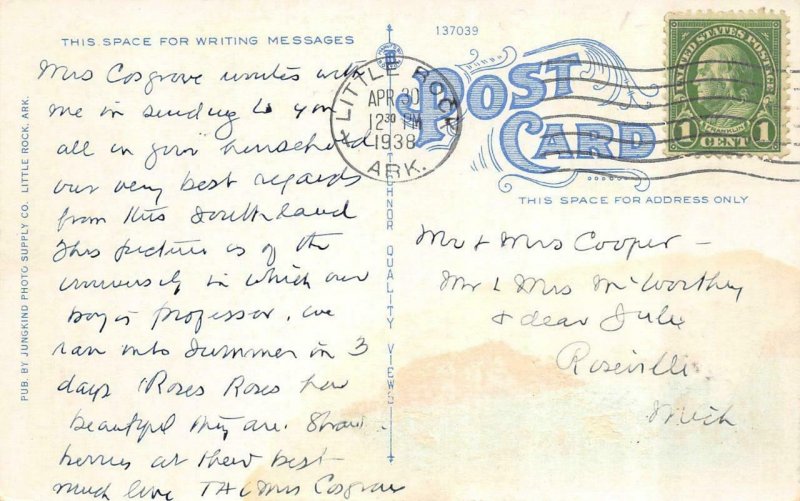 THIS SPACE FOR WRITING MESSAGES
137039
LITTLE ROCK
APR 30
12 30 PM
1938
ARK.
POST
CARD
UNITED STATES POSTAGE
FRANKLIN
1 CENT 1
THIS SPACE FOR ADDRESS ONLY
PUB. BY JUNGKIND PHOTO SUPPLY CO. LITTLE ROCK, ARK.
TECHNOR QUALITY VIEWS
Mrs Cosgrove unites with
me in sending to you
all in your household
our very best regards
from this Southland
This picture is of the
university in which our
boy is professor. we
ran into Summer in 3
days Roses Roses how
beautiful they are. Straw-
berries at their best-
much love Mrs Cosgrove
Mr + Mrs Cooper -
Mr & Mrs McWorthy
& dear Julie
Roseville
Mich